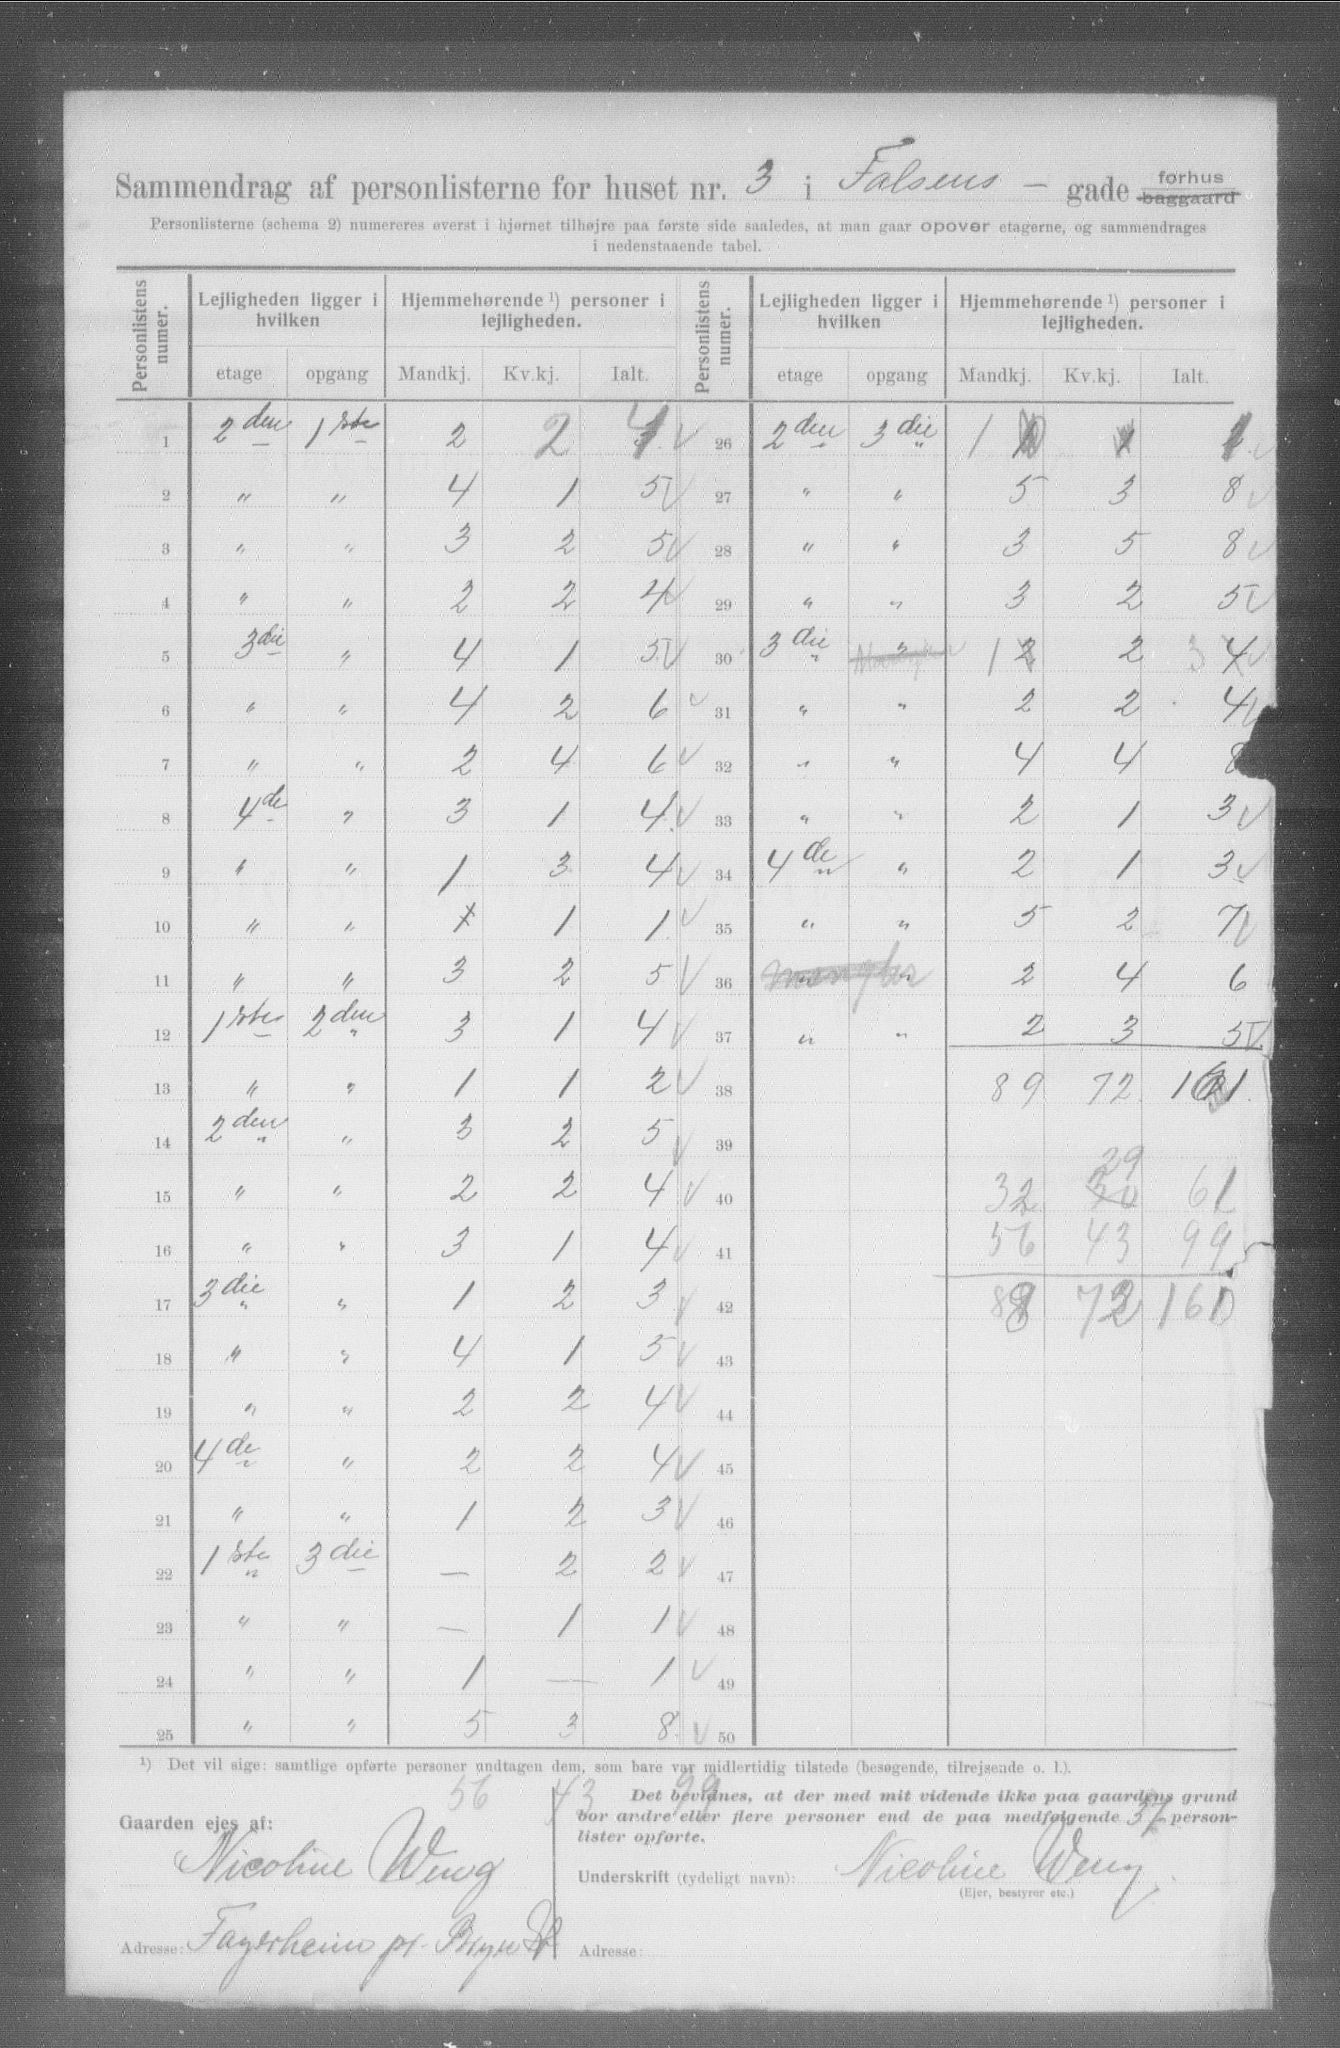 Sammendrag af personlisterne for huset nr. 3 i Falsens - gade forhus baggaard
Personlisterne (schema 2) numereres øverst i hjørnet tilhøjre paa første side saaledes, at man gaar opover etagerne, og sammendrages
i nedenstaaende tabel.
Personlistens numer. Lejligheden ligger i hvilken Hjemmehørende ¹) personer i lejligheden. Personlistens numer. Lejligheden ligger i hvilken Hjemmehørende ¹) personer i lejligheden.
etage opgang Mandkj. Kv.kj. Ialt. etage opgang Mandkj. Kv.kj. Ialt.
1 2den 1ste 2 2 4 V 26 2den 3die 1 1 V
2 " " 4 1 5 V 27 " " 5 3 8 V
3 " " 3 2 5 V 28 " " 3 5 8 V
4 " " 2 2 4 V 29 " " 3 2 5 V
5 3die " 4 1 5 V 30 3die " 1 2 2 3 4 V
6 " " 4 2 6 V 31 " " 2 2 4 V
7 " " 2 4 6 V 32 " " 4 4 8
8 4de " 3 1 4 V 33 " " 2 1 3 V
9 " " 1 3 4 V 34 4de " 2 1 3 V
10 " " 1 1 V 35 " " 5 2 7 V
11 " " 3 2 5 V 36 mangler " 2 4 6
12 1ste 2den 3 1 4 V 37 " " 2 3 5 V
13 " " 1 1 2 V 38 89 72 161.
14 2den " 3 2 5 V 39
29
15 " " 2 2 4 V 40 32 30 61
16 " " 3 1 4 V 41 56 43 99
17 3die " 1 2 3 V 42 88 72 160
18 " " 4 1 5 V 43
19 " " 2 2 4 V 44
20 4de " 2 2 4 V 45
21 " " 1 2 3 V 46
22 1ste 3die — 2 2 V 47
23 " " — 1 1 V 48
24 " " 1 — 1 V 49
25 " " 5 3 8 V 50
¹) Det vil sige: samtlige opførte personer undtagen dem, som bare var midlertidig tilstede (besøgende, tilrejsende o. l.).
56 43 99
Gaarden ejes af:
Nicoline Weng
Adresse: Fagerheim pr. Bryn St
Det bevidnes, at der med mit vidende ikke paa gaardens grund
bor andre eller flere personer end de paa medfølgende 37 person-
lister opførte.
Underskrift (tydeligt navn): Nicoline Weng.
(Ejer, bestyrer etc.)
Adresse: